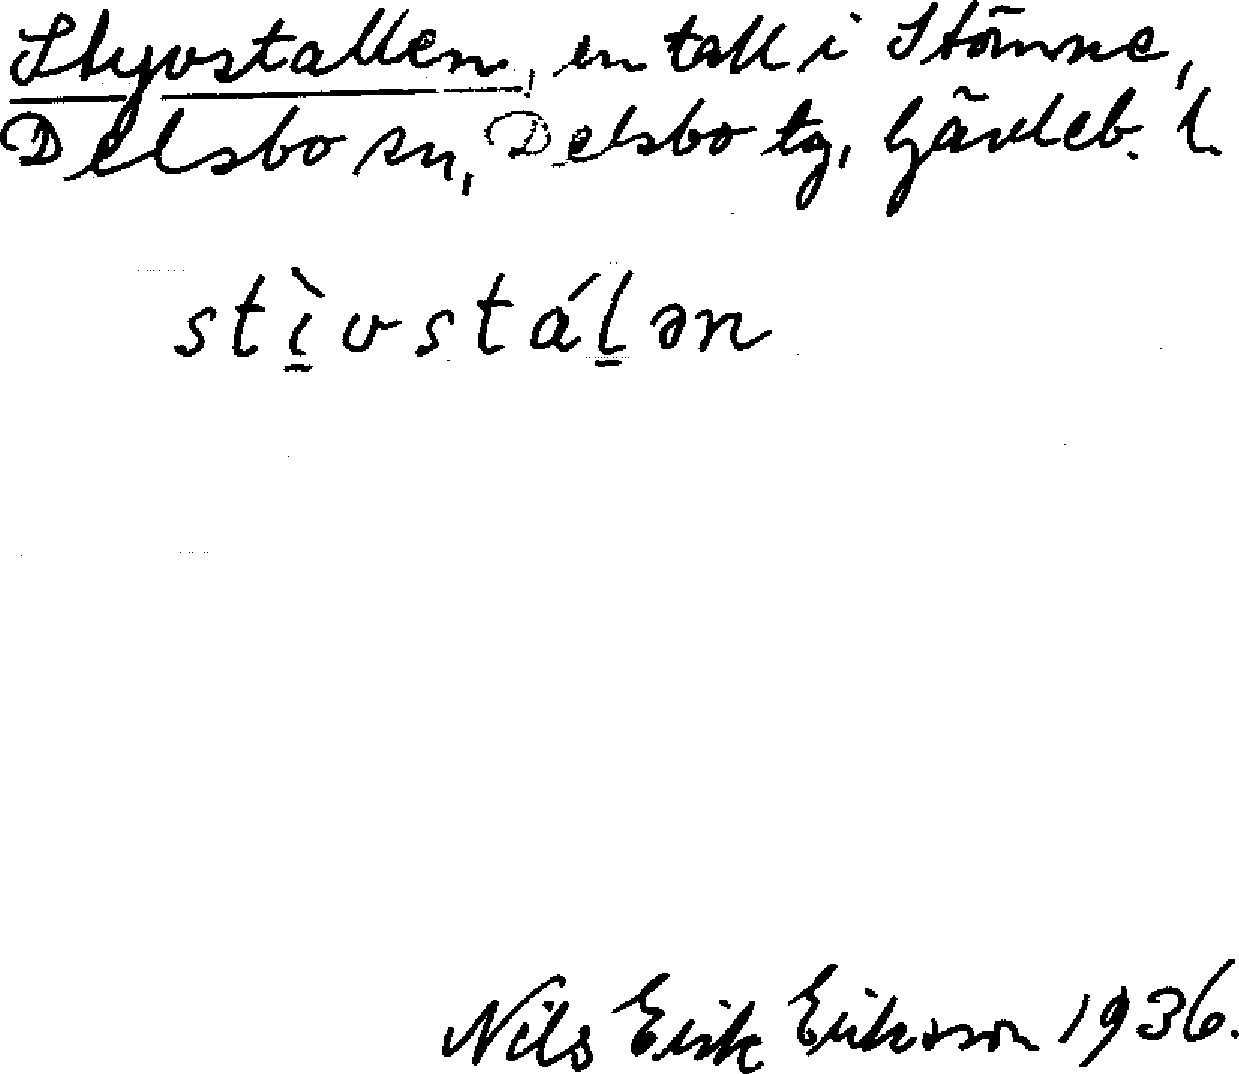 Styvstallen, en tall i Stömne,
Delsbo sn, Delsbo tg, Gävleb. l.
stì̱vstáḻən
Nils Erik Eriksson 1936.